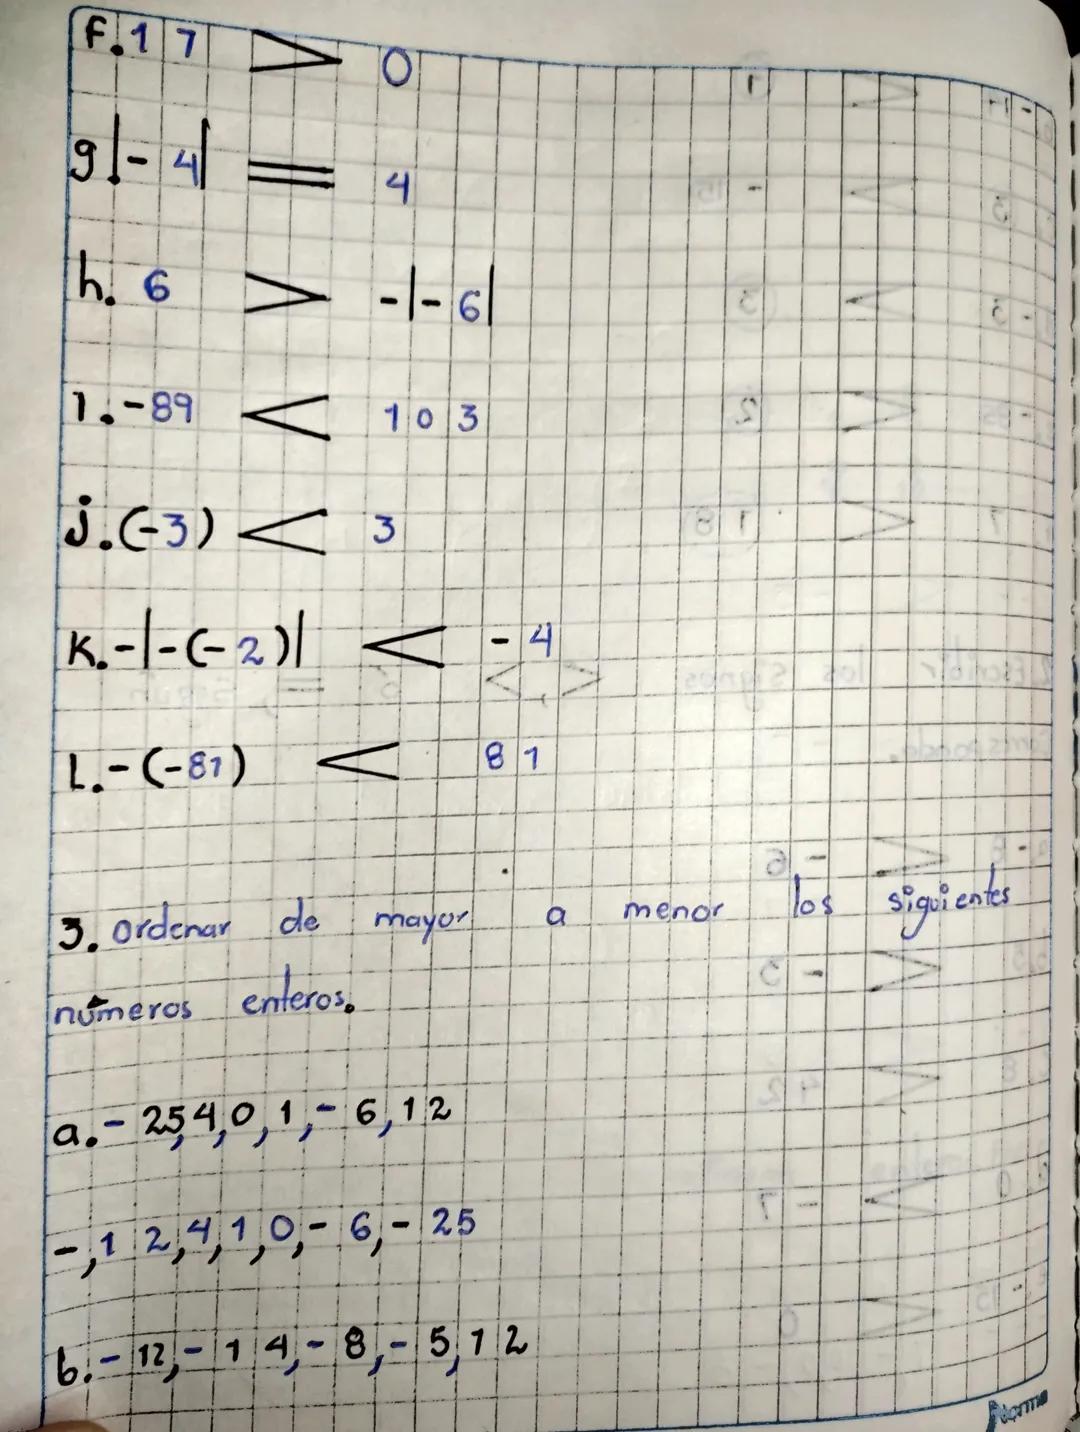 f. 17 > 0
g |-4| = 4
h. 6 > -|-6|
1. -89 < 103
j. (-3) < 3
K. -|-(-2)| < -4
L. -(-81) < 81
3. Ordenar de mayor a menor los siguientes
números enteros.
a. -25,4,0,1,-6,12
-,12,4,1,0,-6,-25
b. -12,-14,-8,-5,12
norma